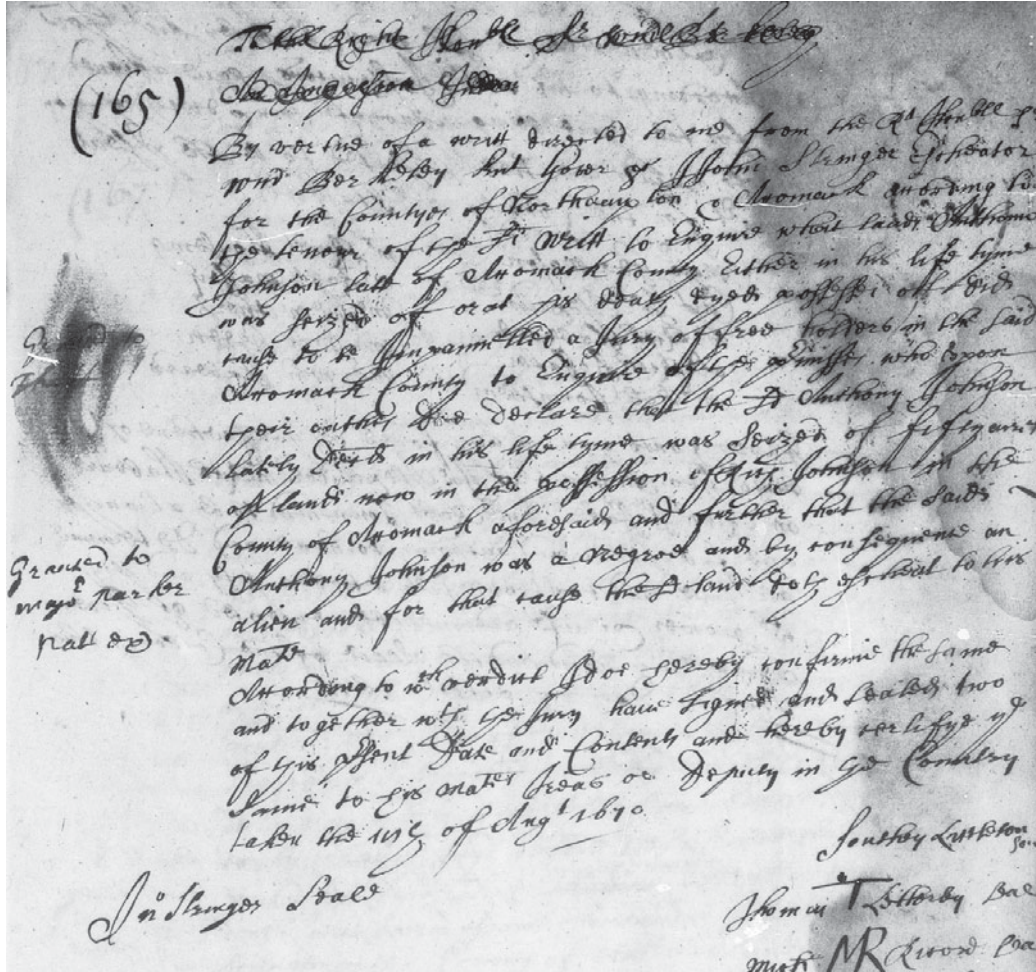 (165)
By vertue of a writt directed to me from the Rt Honble Sr
Will Berkeley Knt Gover &c I John Stringer Escheator
for the Countyes of Northampton & Accomack according to
the tenour of the sd writt to Enquire what lands Anthony
Johnson late of Accomack County Either in his life tyme
was seized of or at his death dyed possesst of did
cause to be Impannelled a Jury of free holders in the said
Accomack County to Enquire of the premisses who upon
their oathes doe declare that the sd Anthony Johnson
lately in his life tyme was seized of fifty acres
of land now in the possession of Rich Johnson in the
County of Accomack aforesaid and further that the said
Anthony Johnson was a negroe and by consequence an
alien and for that cause the sd land doth escheat to his
Matie
According to wch verdict I doe hereby confirme the same
and together wth the Jury have signed and sealed two
of this Date and Contents and hereby certifye ye
same to his Maties Treas or deputy in ye Country
taken the of Augt 1670
Granted to
Majr Parker
pat ex
Southey Littleton
Jno Stringer Seale
Thomas T
MR